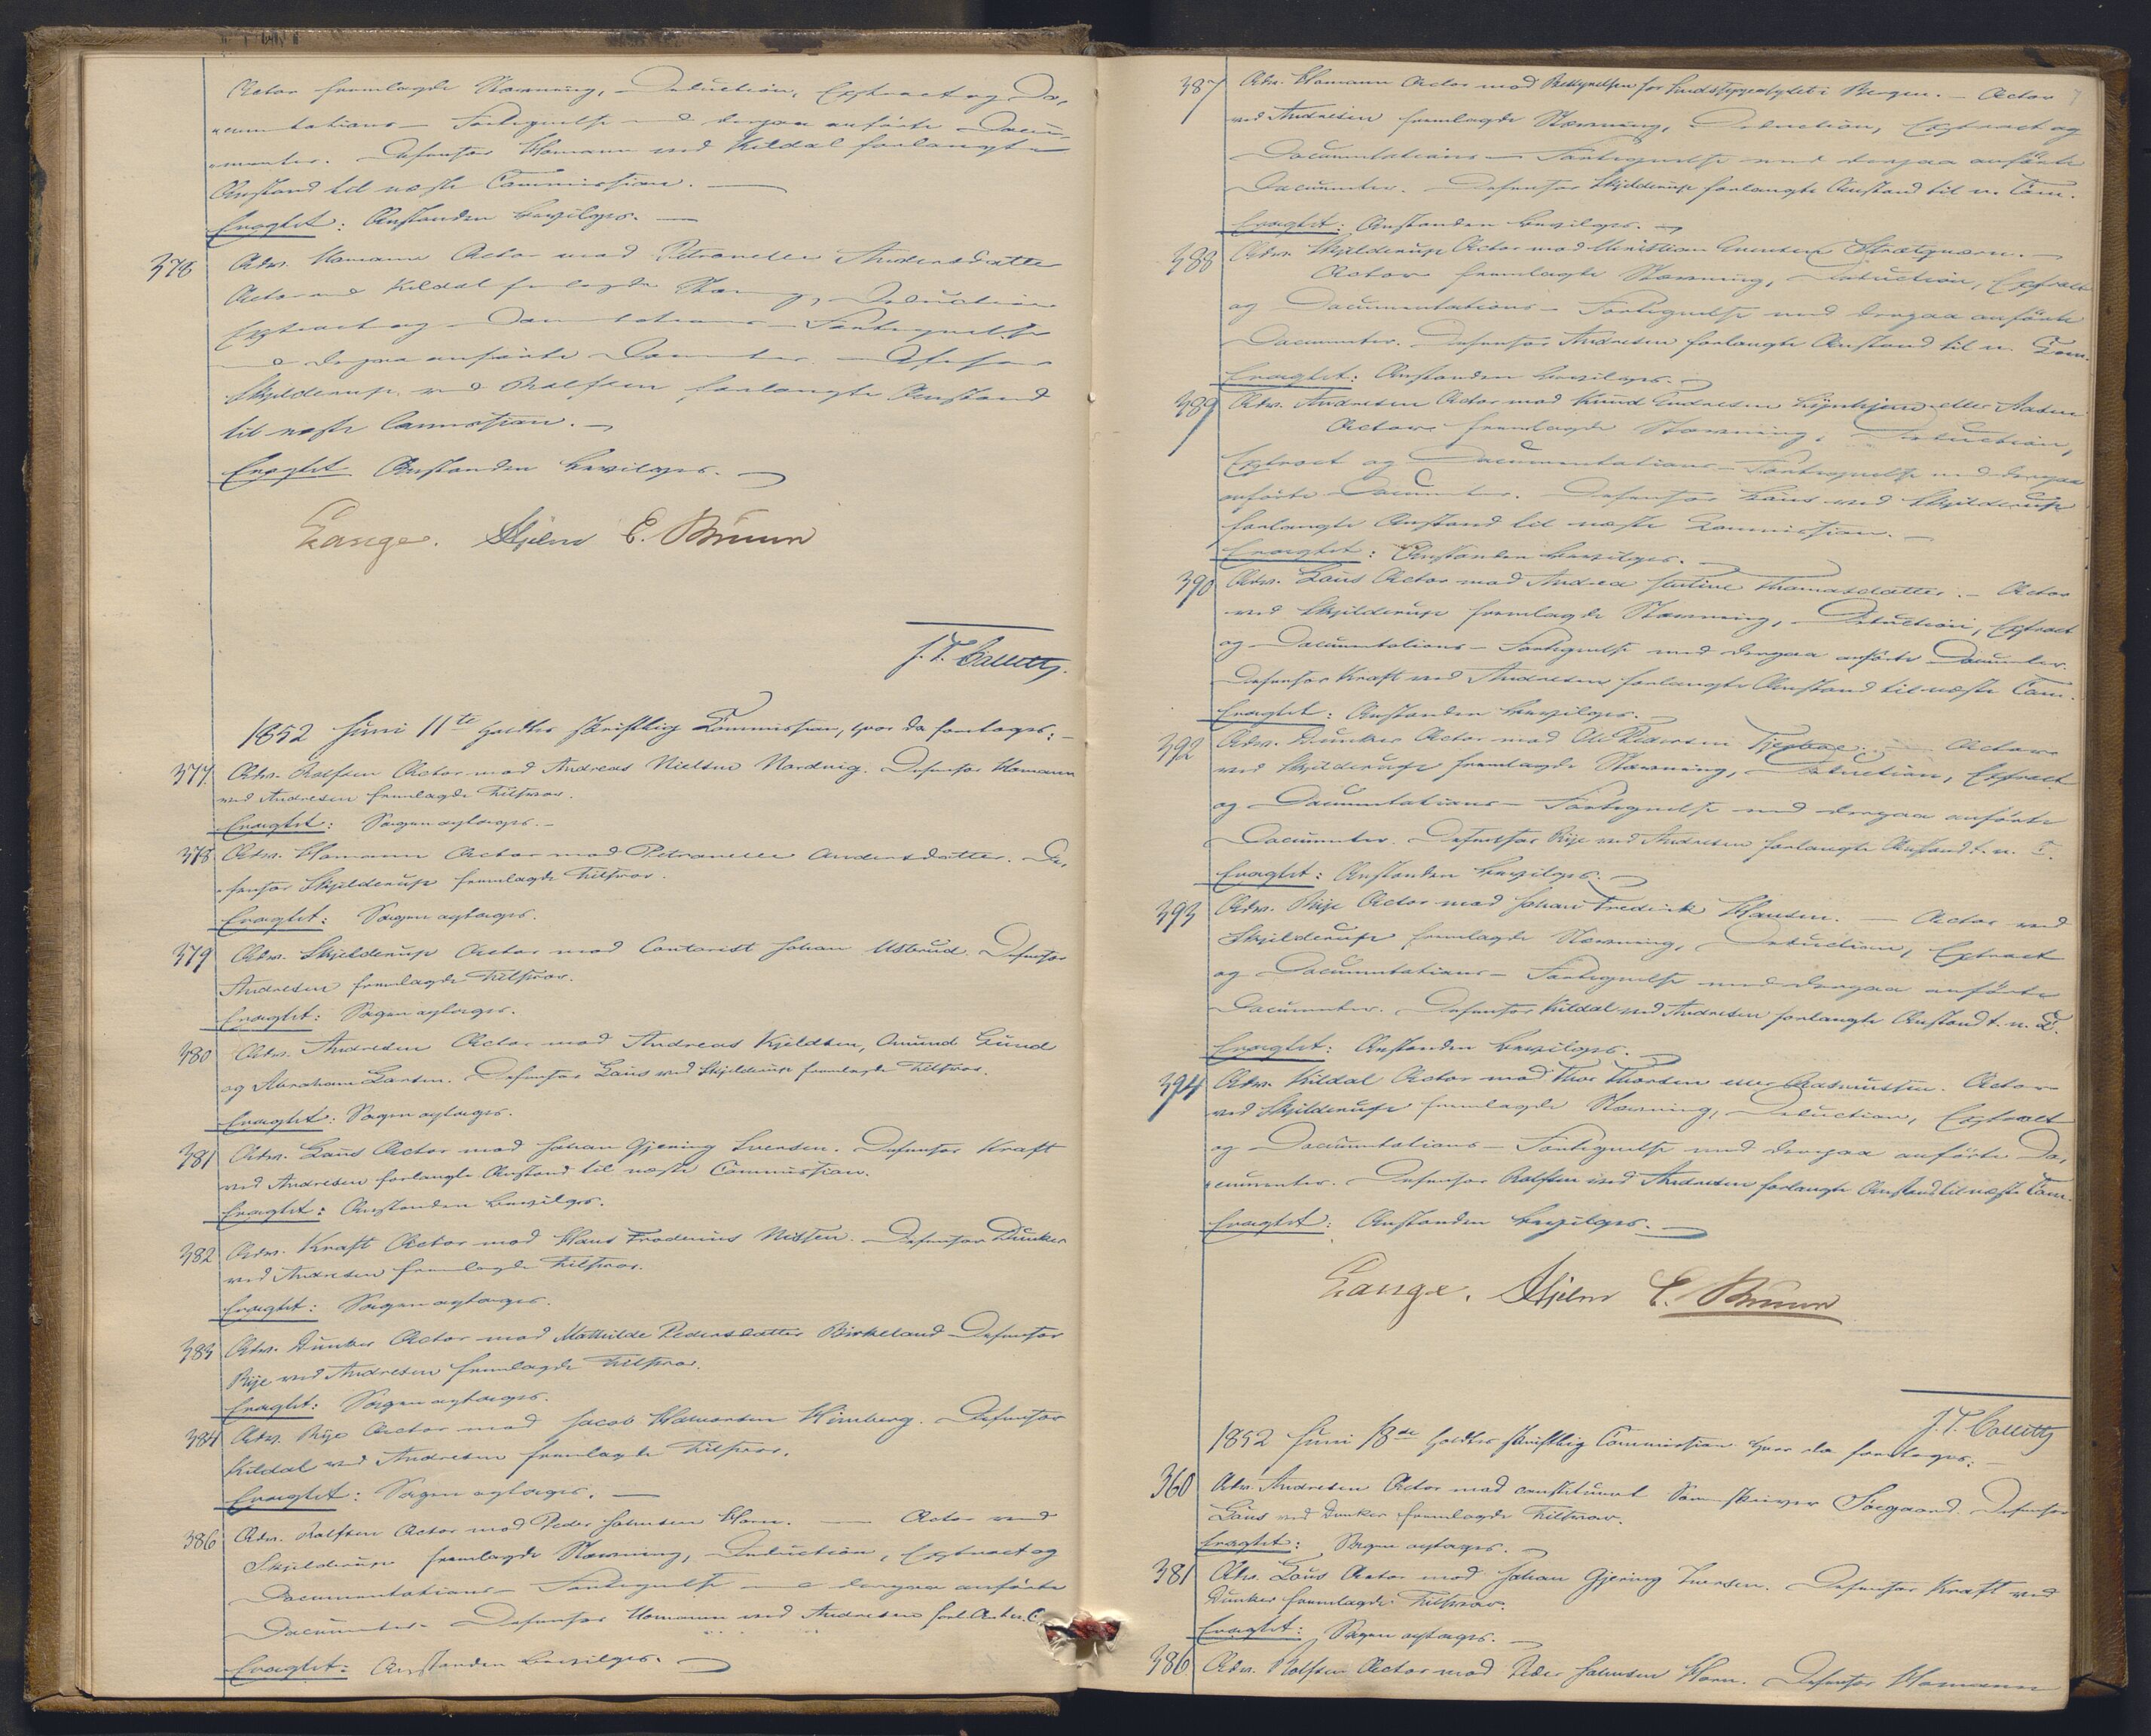 Actor fremlagde Stævning, Deduction, Extract og Do-
cumentations-Fortegnelse med derpaa anførte Docu-
menter. Defensor Homann ved Kildal forlangte
Anstand til næste Commission. —
Eragtet: Anstanden bevilges. —
378 Adv. Homann Actor mod Petronelle Andersdatter
Actor ved Kildal fremlagde Stævning, Deduction
Extract og Documentations-Fortegnelse
med derpaa anførte Documenter. Defensor
Skjelderup ved Rolfsen forlangte Anstand
til næste Commission. —
Eragtet Anstanden bevilges. —
Lange. Hjelm E. Bruun
J. T. Collett.
1852 Juni 11te holdtes skriftlig Commission, hvor da foretoges: —
377. Adv. Rolfsen Actor mod Andreas Nielsen Nordvig. Defensor Homann
ved Andresen fremlagde Tilsvar.
Eragtet: Sagen optages. —
378 Adv. Homann Actor mod Petronelle Andersdatter. De-
fensor Skjelderup fremlagde Tilsvar.
Eragtet: Sagen optages.
379 Adv. Skjelderup Actor mod Contorist Johan Usbrud. Defensor
Andresen fremlagde Tilsvar.
Eragtet: Sagen optages.
380 Adv. Andresen Actor mod Andreas Kjeldsen, Amund Lund
og Abraham Larsen. Defensor Laus ved Skjelderup fremlagde Tilsvar.
Eragtet: Sagen optages.
381 Adv. Laus Actor mod Johan Gjening Iversen. Defensor Kraft
ved Andresen forlangte Anstand til næste Commission.
Eragtet: Anstanden bevilges.
382 Adv. Kraft Actor mod Hans Frodenius Nissen. Defensor Dunker
ved Andresen fremlagde Tilsvar.
Eragtet: Sagen optages.
383 Adv. Dunker Actor mod Mathilde Pedersdatter Birkeland Defensor
Rije ved Andresen fremlagde Tilsvar.
Eragtet: Sagen optages.
384 Adv. Rije Actor mod Jacob Halvorsen Himberg. Defensor
Kildal ved Andresen fremlagde Tilsvar.
Eragtet: Sagen optages. —
386 Adv. Rolfsen Actor mod Peder Johnsen Horn. — Actor ved
Skjelderup fremlagde Stævning, Deduction, Extract og
Documentations-Fortegnelse med derpaa anførte
Documenter. Defensor Homann ved Andresen forl. Anst. n. C.
Eragtet: Anstanden bevilges. —
387 Adv. Homann Actor mod Bestyrelsen for Sindssygeasylet i Bergen. — Actor
ved Andresen fremlagde Stævning, Deduction, Extract og
Documentations-Fortegnelse med derpaa anførte
Documenter. Defensor Skjelderup forlangte Anstand til n. Com.
Eragtet: Anstanden bevilges. —
388 Adv. Skjelderup Actor mod Christian Evensen Strætqværn. —
Actor fremlagde Stævning, Deduction, Extract
og Documentations-Fortegnelse med derpaa anførte
Documenter. Defensor Andresen forlangte Anstand til n. Com.
Eragtet: Anstanden bevilges. —
389 Adv. Andresen Actor mod Knud Endresen eller Aasen
Actor fremlagde Stævning, Deduction,
Extract og Documentations-Fortegnelse med derpaa
anførte Documenter. Defensor Laus ved Skjelderup
forlangte Anstand til næste Commission. —
Eragtet: Anstanden bevilges. —
390 Adv. Laus Actor mod Andrea Justine Thomasdatter. — Actor
ved Skjelderup fremlagde Stævning, Deduction, Extract
og Documentations-Fortegnelse med derpaa anførte Documenter.
Defensor Kraft ved Andresen forlangte Anstand til næste Com.
Eragtet: Anstanden bevilges. —
392 Adv. Dunker Actor mod Ole Pedersen Tjernboe. Actor
ved Skjelderup fremlagde Stævning, Deduction, Extract
og Documentations-Fortegnelse med derpaa anførte
Documenter. Defensor Rije ved Andresen forlangte Anstand t. n. C.
Eragtet: Anstanden bevilges. —
393 Adv. Rije Actor mod Johan Frederik Hansen. — Actor ved
Skjelderup fremlagde Stævning, Deduction, Extract
og Documentations-Fortegnelse med derpaa anførte
Documenter. Defensor Kildal ved Andresen forlangte Anstand t. n. C.
Eragtet: Anstanden bevilges. —
394 Adv. Kildal Actor mod Thor Thorsen eller Rasmussen. Actor
ved Skjelderup fremlagde Stævning, Deduction, Extract
og Documentations-Fortegnelse med derpaa anførte Do-
cumenter. Defensor Rolfsen ved Andresen forlangte Anstand til næste Com.
Eragtet: Anstanden bevilges. —
Lange. Hjelm E. Bruun
J. T. Collett
1852 Juni 18de holdtes skriftlig Commission hvor da foretoges: —
360 Adv. Andresen Actor mod constitueret Sorenskriver Søegaard. Defensor
Laus ved Dunker fremlagde Tilsvar.
Eragtet: Sagen optages. —
381 Adv. Laus Actor mod Johan Gjening Iversen. Defensor Kraft ved
Dunker fremlagde Tilsvar.
Eragtet: Sagen optages. —
386 Adv. Rolfsen Actor mod Peder Johnsen Horn. Defensor Homann